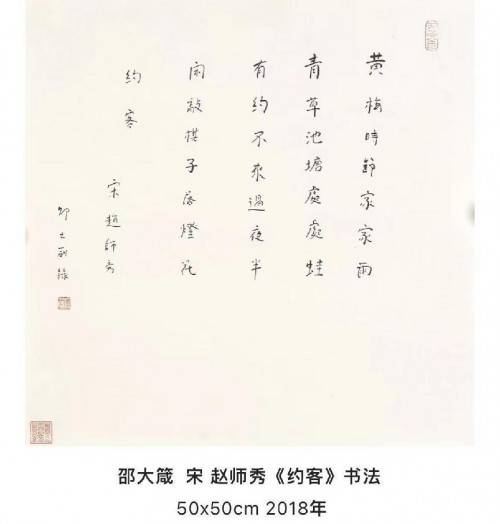 黄梅時節家家雨
青草池塘處處蛙
有約不來過夜半
閑敲棋子落燈花
約客
宋趙師秀
邵大箴錄
邵大箴 宋 赵师秀《约客》书法
50x50cm 2018年